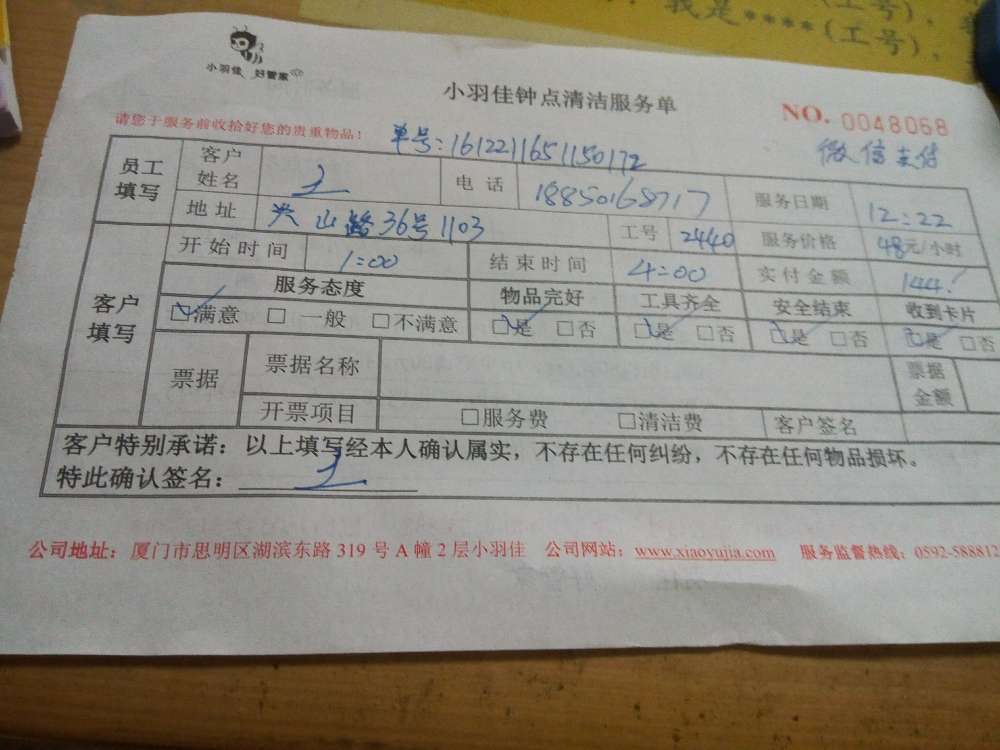 我是****(工号),
****(工号),
小羽佳 好管家
小羽佳钟点清洁服务单
NO. 0048068
请您于服务前收拾好您的贵重物品!
单号:1612211651150172
微信支付
员工填写 客户姓名 王 电话 18850168717 服务日期 12:22
地址 山路36号1103 工号 2440 服务价格 48元/小时
客户填写 开始时间 1:00 结束时间 4:00 实付金额 144
服务态度 物品完好 工具齐全 安全结束 收到卡片
☑满意 □一般 □不满意 ☑是 □否 ☑是 □否 ☑是 □否 ☑是 □否
票据 票据名称 票据金额
开票项目 □服务费 □清洁费 客户签名
客户特别承诺:以上填写经本人确认属实,不存在任何纠纷,不存在任何物品损坏。
特此确认签名: 王
公司地址:厦门市思明区湖滨东路 319 号 A 幢 2 层小羽佳 公司网站:www.xiaoyujia.com 服务监督热线:0592-588812